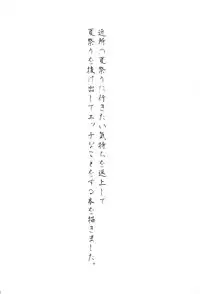 近所の夏祭りに行きたい気持ちを送上して
夏祭りを抜け出してエッチなことをする本を描きました。